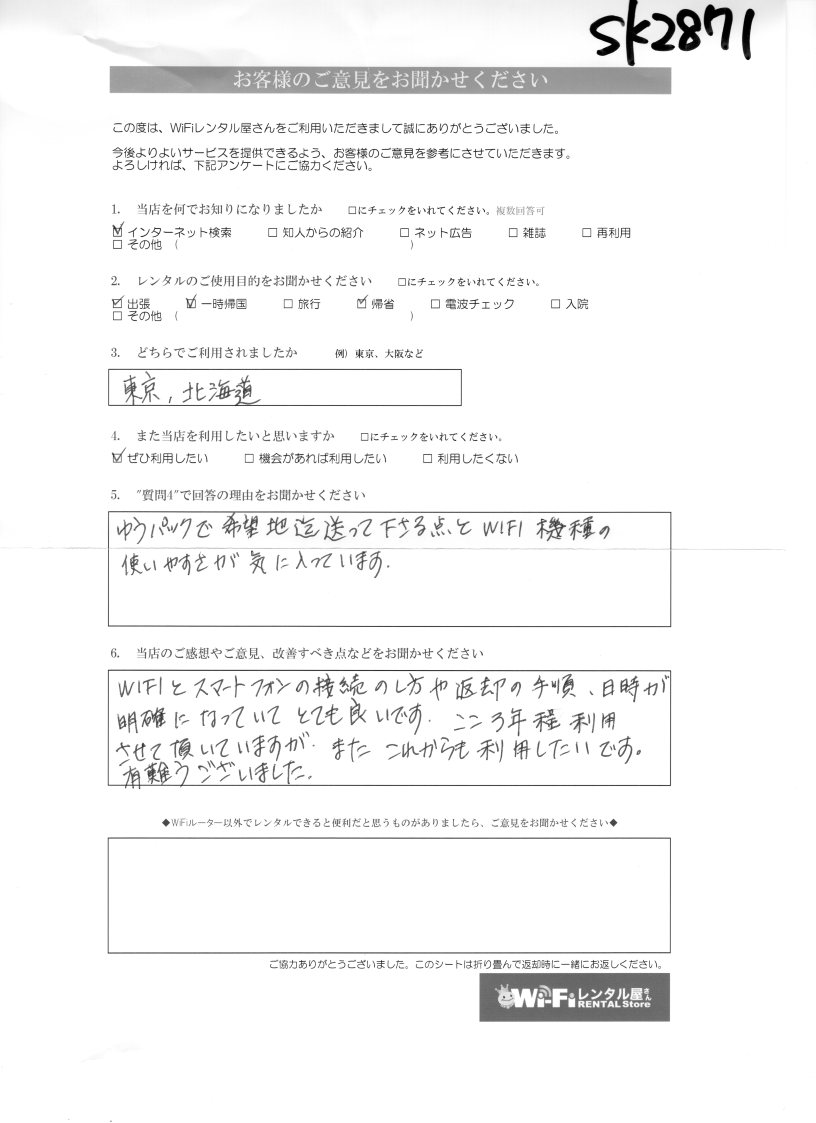 sk2871
お客様のご意見をお聞かせください
この度は、WiFiレンタル屋さんをご利用いただきまして誠にありがとうございました。
今後よりよいサービスを提供できるよう、お客様のご意見を参考にさせていただきます。
よろしければ、下記アンケートにご協力ください。
1. 当店を何でお知りになりましたか □にチェックをいれてください。複数回答可
☑ インターネット検索 □ 知人からの紹介 □ ネット広告 □ 雑誌 □ 再利用
□ その他 ( )
2. レンタルのご使用目的をお聞かせください □にチェックをいれてください。
☑ 出張 ☑ 一時帰国 □ 旅行 ☑ 帰省 □ 電波チェック □ 入院
□ その他 ( )
3. どちらでご利用されましたか 例) 東京、大阪など
東京, 北海道
4. また当店を利用したいと思いますか □にチェックをいれてください。
☑ ぜひ利用したい □ 機会があれば利用したい □ 利用したくない
5. "質問4"で回答の理由をお聞かせください
ゆうパックで希望地迄送って下さる点と WIFI 機種の
使いやすさが気に入っています.
6. 当店のご感想やご意見、改善すべき点などをお聞かせください
WIFIとスマートフォンの接続のし方や返却の手順、日時が
明確になっていてとても良いです. ここ3年程利用
させて頂いていますが. またこれからも利用したいです。
有難うございました.
◆WiFiルーター以外でレンタルできると便利だと思うものがありましたら、ご意見をお聞かせください◆
ご協力ありがとうございました。このシートは折り畳んで返却時に一緒にお返しください。
Wi-Fiレンタル屋さん
RENTAL Store